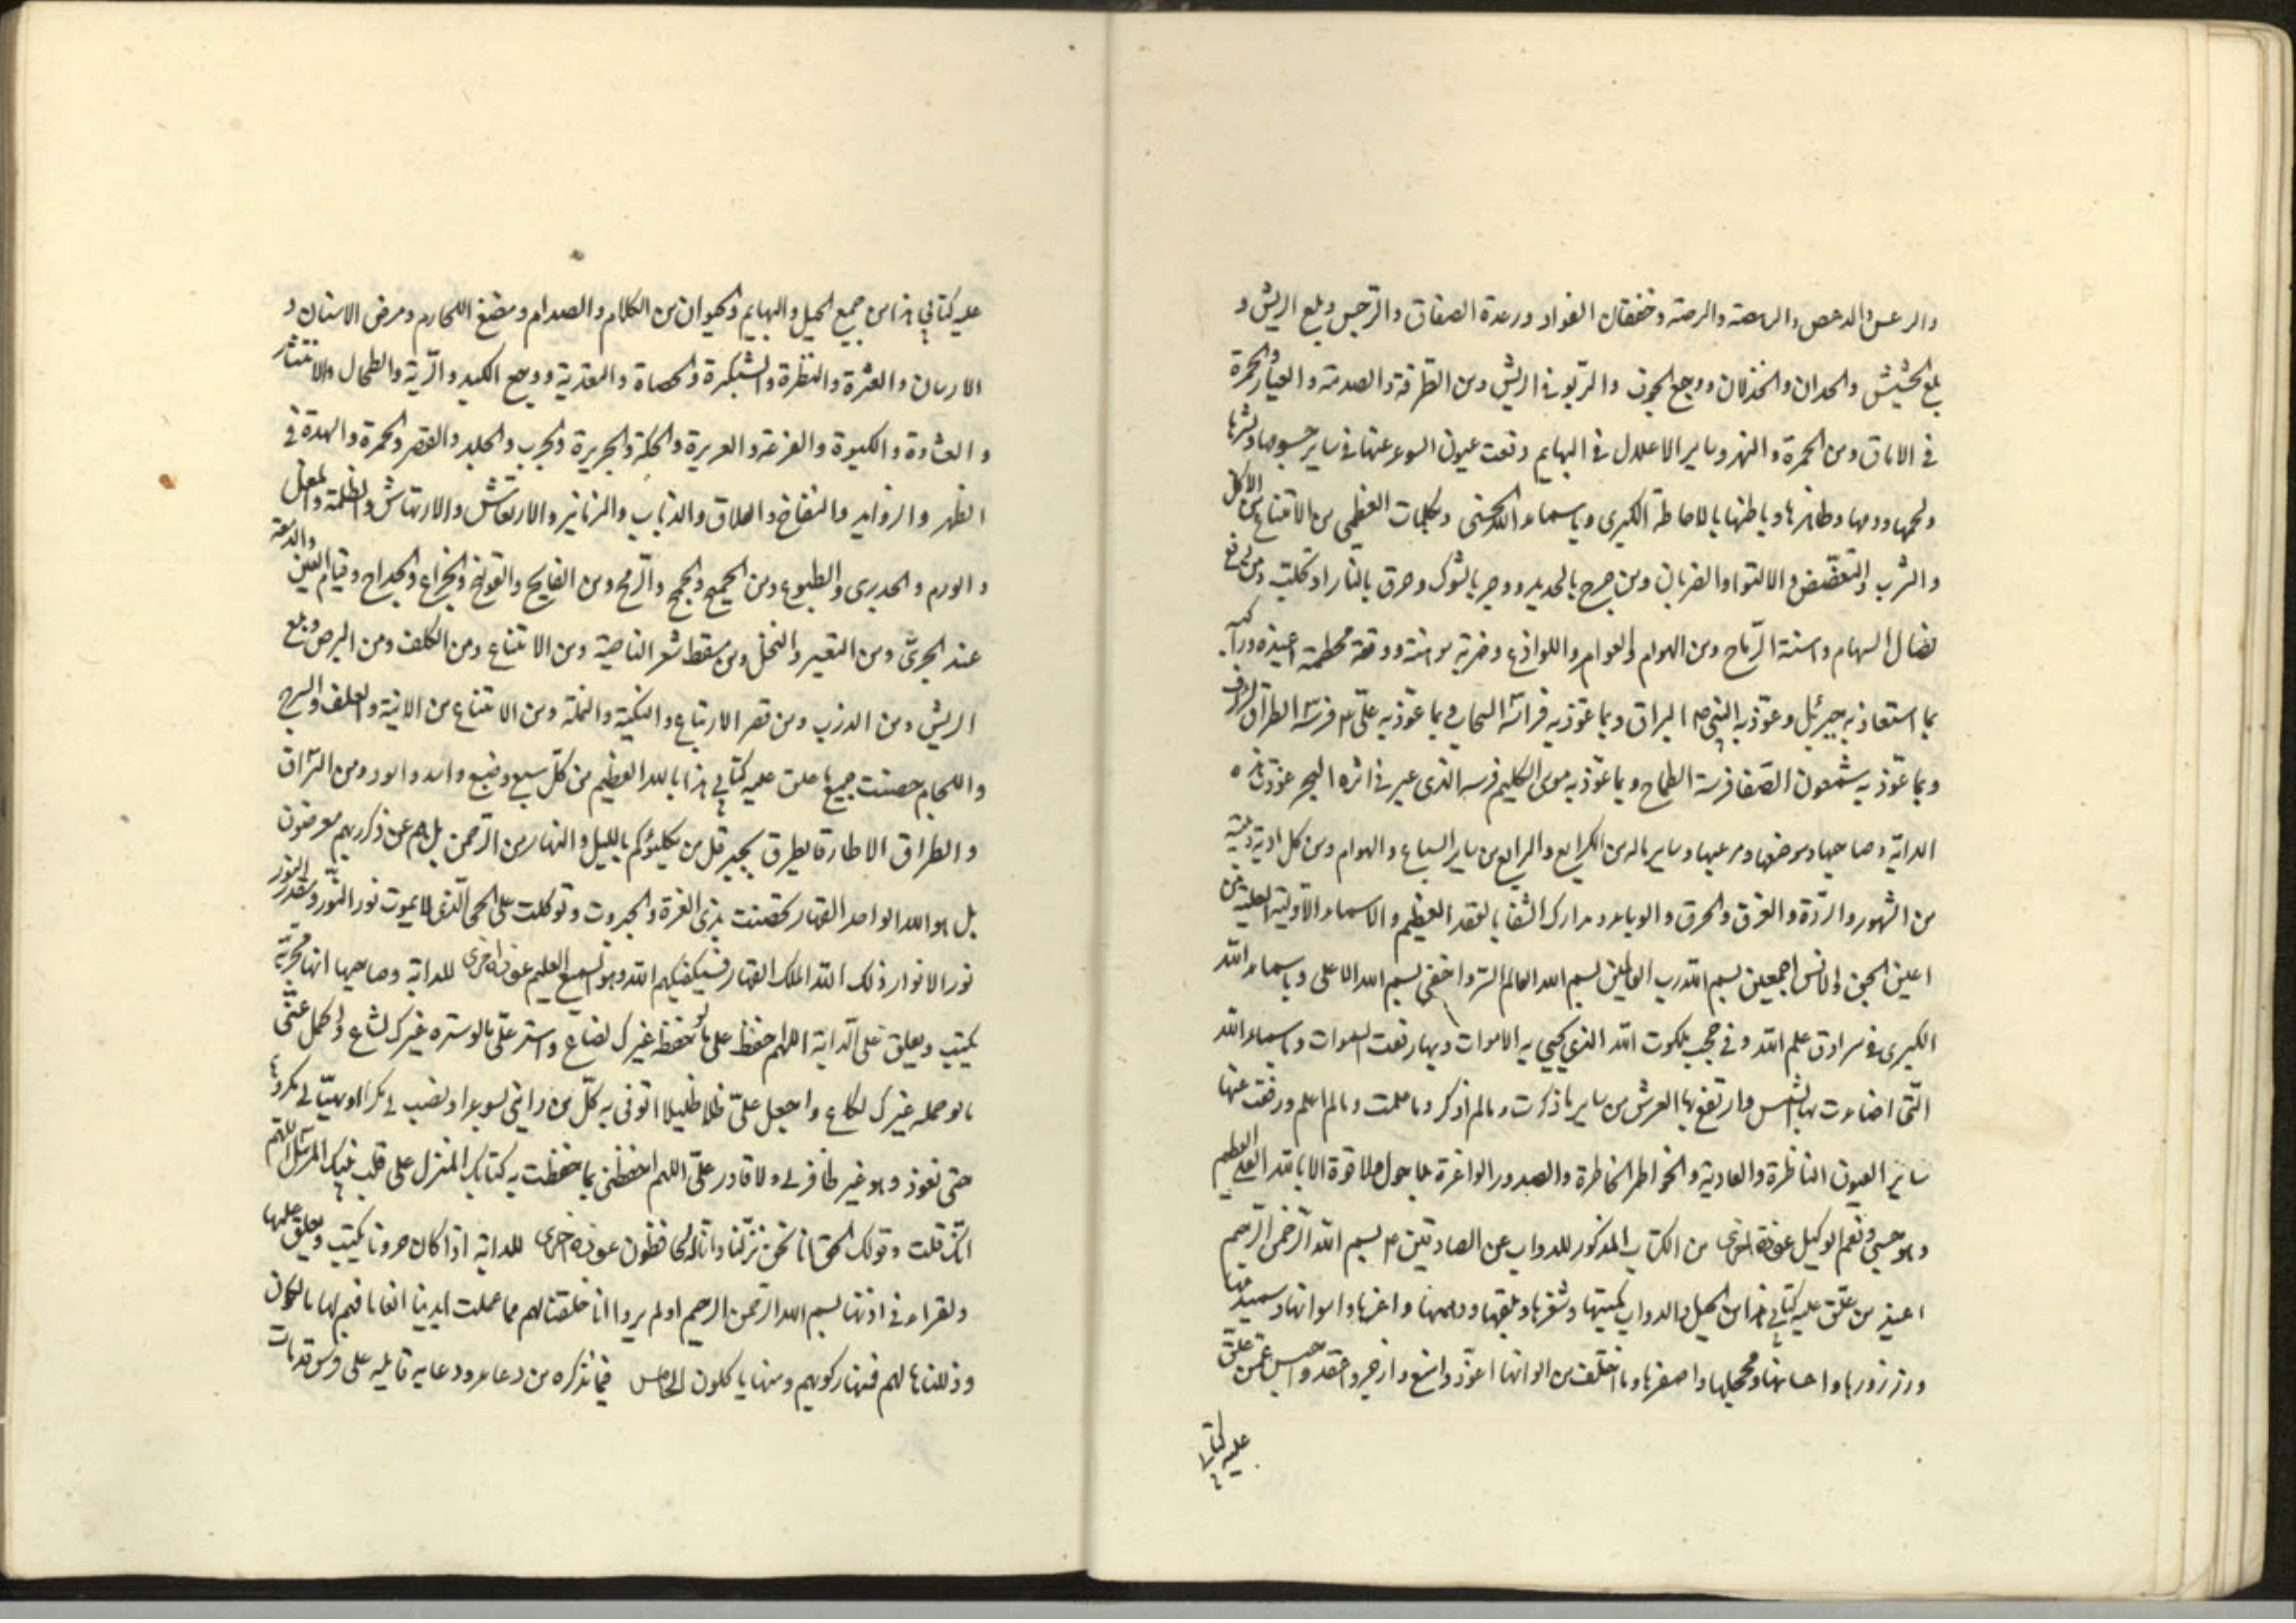 والرعس والدعص والرهصة والرصة وخفقان الفواد ورعدة الصفاق والترجس وبلع الريش و
بلع الحشيش والحدان والخذلان ووجع الجوف والربو في الريش ومن الطرفة والصدمة والعثار والحمرة
في الاماق ومن الحمرة والنهر وساير الاعلال في البهايم دفعت عيون السوء عنها في ساير جسومها وبشرها
ولحمها ودمها وظاهرها وباطنها بالاحاطة الكبرى وباسماء الله الحسنى وبكلمات العظمى من الامتناع من الاكل
والشرب والتغضض والالتواء والضربان ومن جرح بالحديد ووجر بالشوك وحرق بالنار او
نصال السهام واسنة الرماح ومن الهوام والعوام واللواذع وضربة موهنة ودقة محطمة
بما استعاذ به جبرئيل وعوذ به النبي ص البراق وبما عوذ به فراسه السحاب وبما عوذ به علي ع فرسه الطراق
وبما عوذ به شمعون الصفا فرسه الطماح وبما عوذ به موسى الكليم فرسه الذي عبر في اثره البحر عوذت هذه
الدابة وصاحبها وموضعها ومرعيها وساير ماله من الكرايع والرايع من ساير السباع والهوام ومن كل اذية
من الشهور والردة والغرق والحرق والوباء ومدارك الشقا بالعقد العظيم والاسماء الاولية العلية من
اعين الجن والانس اجمعين بسم الله رب العالمين بسم الله العالم السر واخفى بسم الله الاعلى وباسماء الله
الكبرى في سرادق علم الله وفي حجب ملكوت الله الذي يحيي به الاموات وبها رفعت السموات وباسماء الله
التي اضاءت بها الشمس وارتفع بها العرش من ساير ما ذكرت وما لم اذكر وما علمت وما لم اعلم ورفعت عنها
ساير العيون الناظرة والعادية والخواطر الخاطرة والصدور الواغرة بلا حول ولا قوة الا بالله العلي العظيم
وهو حسبي ونعم الوكيل عوذة اخرى من الكتاب المذكور للدواب عن الصادقين ع بسم الله الرحمن الرحيم
اعيذ من علق عليه كتابي هذا من الخيل والدواب كميتها وشقرها وبلقها ودهمها واغرها واحوائها وسمندها
ورزرورها واحسانها ومحجلها واصفرها وما اختلف من الوانها اعوذ وامنع وازجر واعقد واحبس عمن علق
عليه كتابي
عليه كتابي هذا من جميع الخيل والبهايم والحيوان من الكلام والصدام ومضغ اللجام ومرض الاسنان و
الارسان والعثرة والنظرة والشبكرة والحصاة والمعدية ووجع الكبد والرية والطحال والانتشار
والعثاوة والكبوة والفزعة والعريرة والحكة والجريرة والجرب والجلد والقصر والحمرة والهدة في
الظهر والزوايد والنفاخ والعلاق والذباب والزنانير والارتعاش والارتهاش والظلمة والمغل
والورم والجدري والطبوع ومن الجميح والجمح والرمح ومن الفالج والقولنج والخراج والجداح وقيام العين والدمعة
عند الجري ومن التعير والتنخل ومن سقط شعر الناصية ومن الامتناع ومن الكلف ومن البرص وبلع
الريش ومن الذرب ومن قصر الارتباع والنكتة والنملة ومن الامتناع من الابنة والعلف والسرج
واللجام حصنت جميع ما علق عليه كتابي هذا بالله العظيم من كل سبع وضبع واسد واسود ومن السراق
والطراق الا طارقا يطرق بخير قل من يكلؤكم بالليل والنهار من الرحمن بل هم عن ذكر ربهم معرضون
بل هو الله الواحد القهار تحصنت بذي العزة والجبروت وتوكلت على الحي الذي لا يموت نور النور ومقدر النور
نور الانوار ذلك الله الملك القهار فسيكفيكهم الله وهو السميع العليم عوذة اخرى للدابة وصاحبها انها مجربة
يكتب ويعلق على الدابة اللهم احفظ علي ما لو حفظه غيرك لضاع واستر علي ما لو ستره غيرك لشاع واحمل عني
ما لو حمله غيرك لكاع واجعل علي ظلا ظليلا اتوقى به كل من رامني بسوء او نصب لي مكرا او هيأ لي مكروها
حتى يعود وهو غير ظافر لي ولا قادر علي اللهم احفظني بما حفظت به كتابك المنزل على قلب نبيك المرسل اللهم
انك قلت وقولك الحق انا نحن نزلنا وانا له لحافظون عوذة اخرى للدابة اذا كان حرونا يكتب ويعلق عليها
ويقراء في اذنها بسم الله الرحمن الرحيم اولم يروا انا خلقنا لهم مما عملت ايدينا انعاما فهم لها مالكون
وذللناها لهم فمنها ركوبهم ومنها ياكلون الخامس فيما نذكره من دعاء ودعا به قايله على فرس قد مات